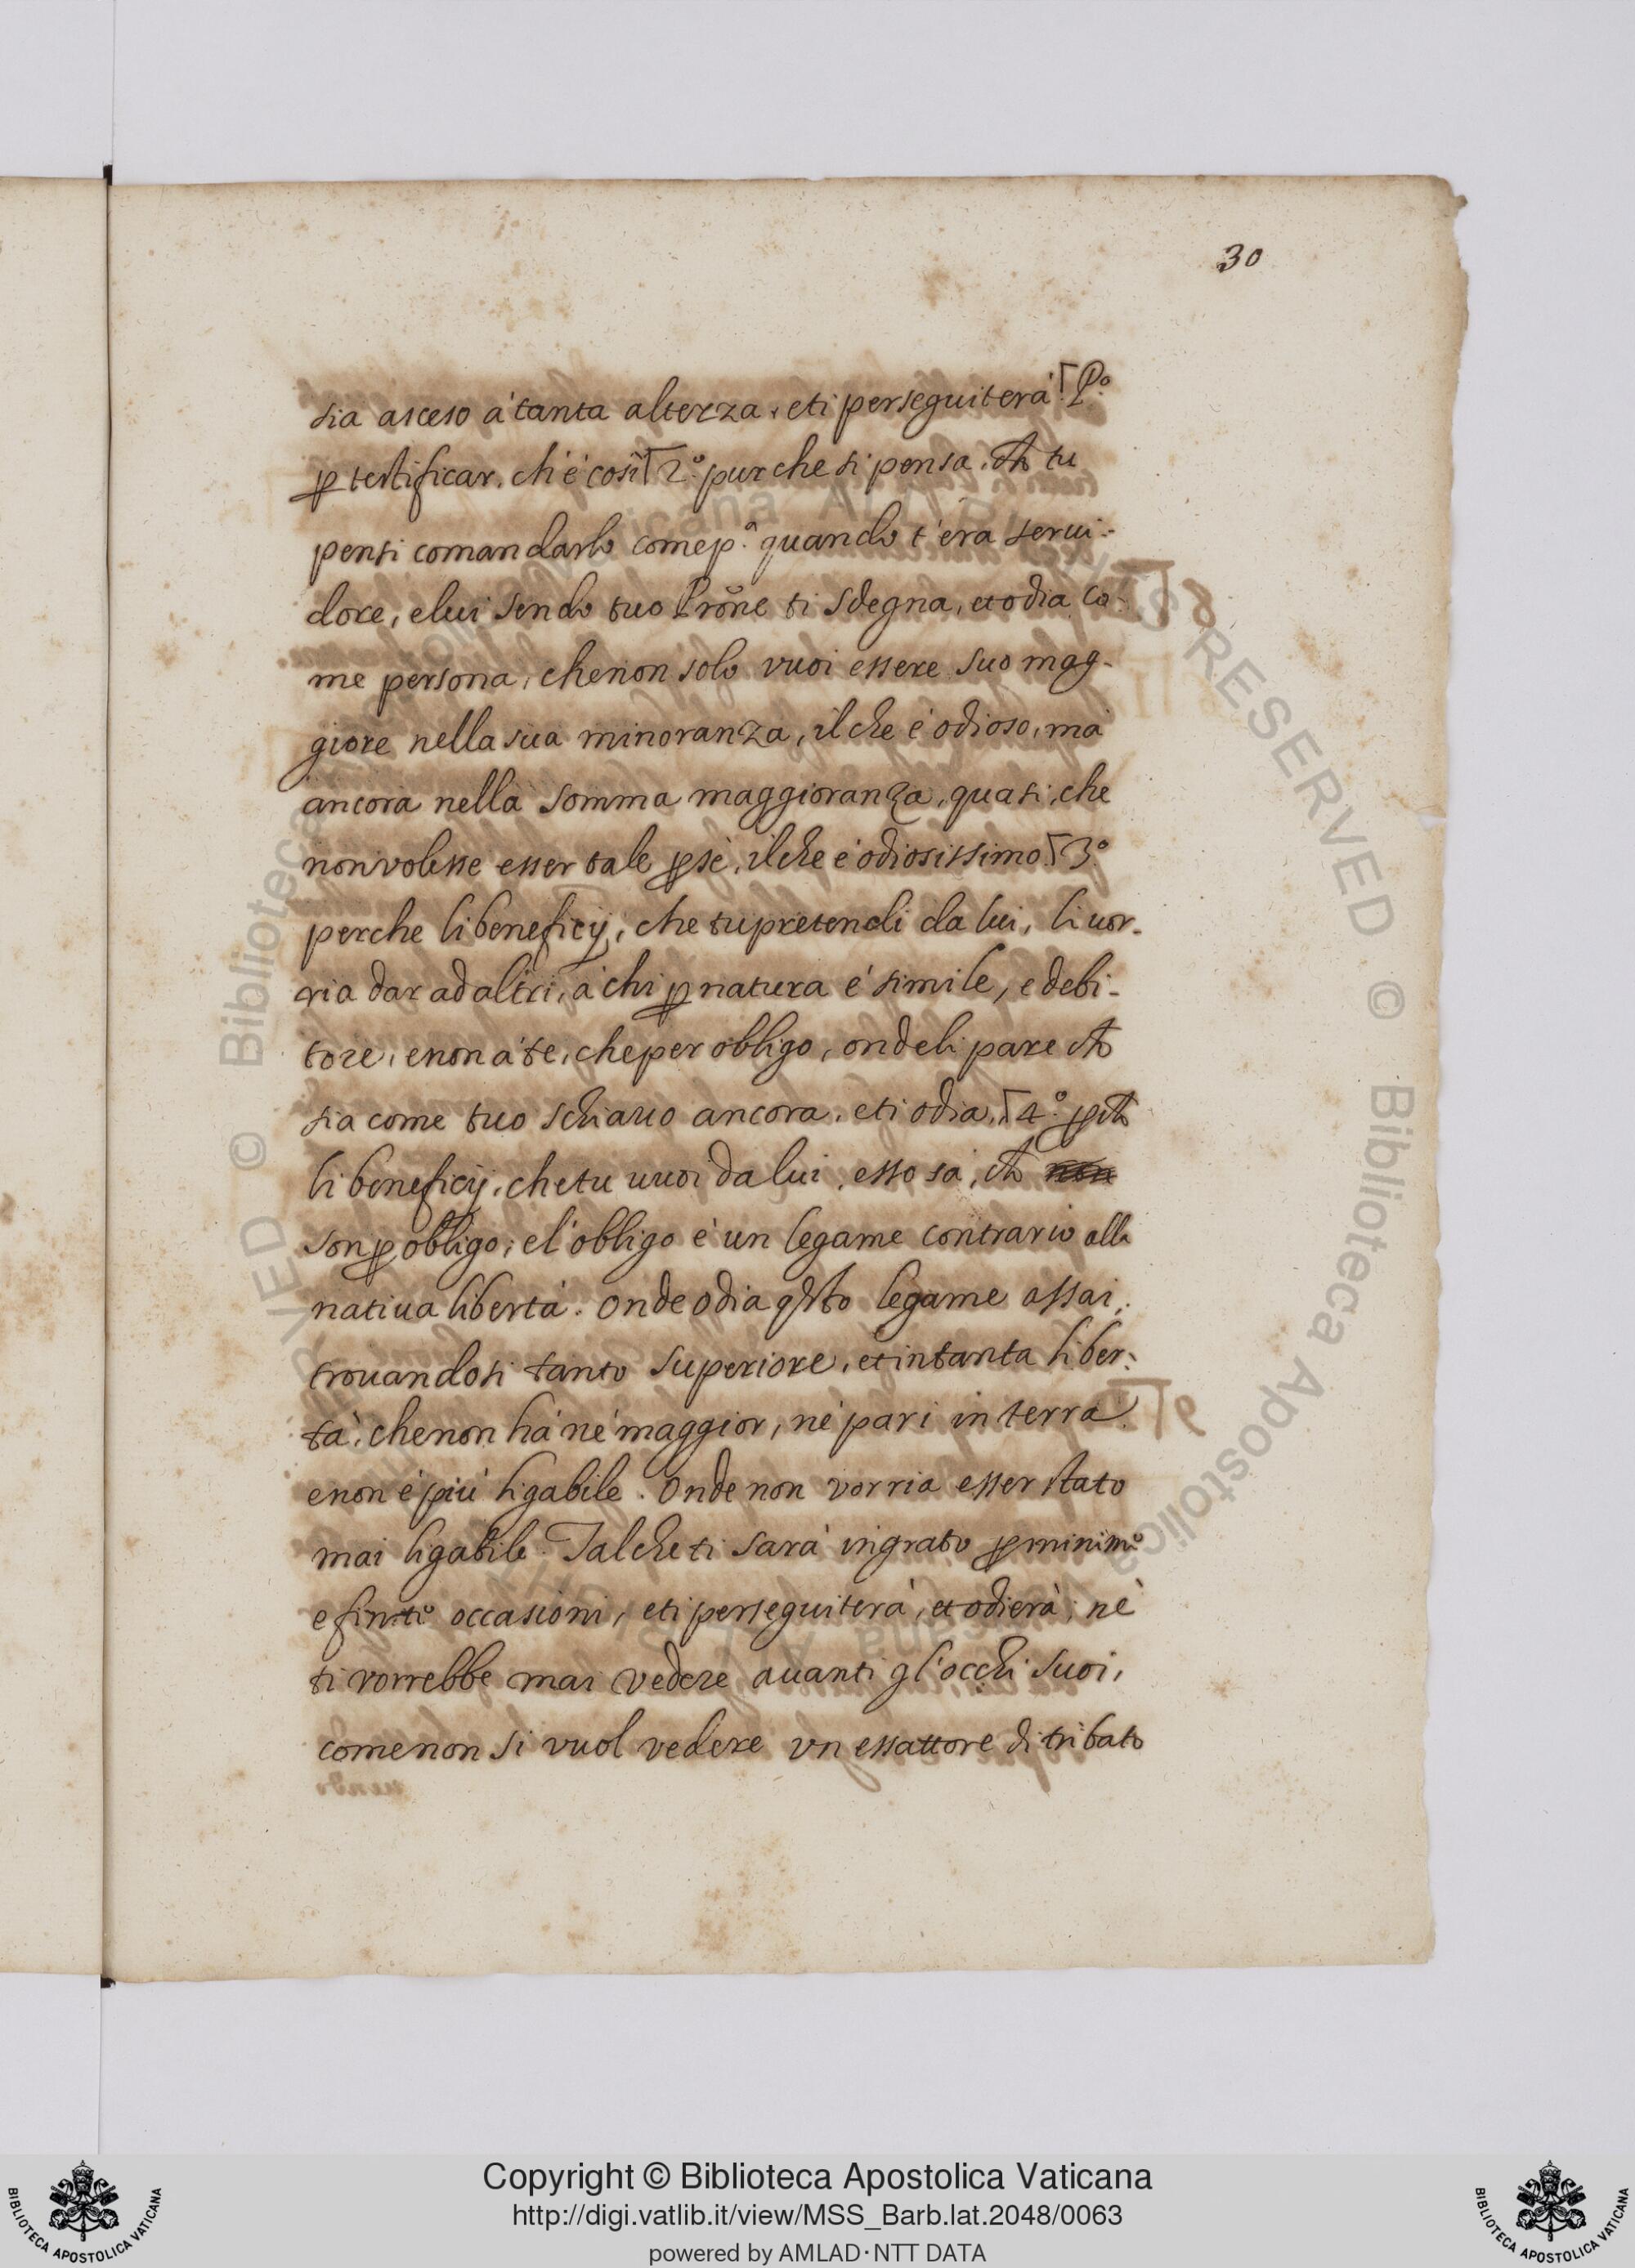 30
sia asceso à tanta altezza, e ti perseguiterà. P.º
ꝑ testificar, ch'è così 2.º purche si pensa, ch̃ tu
pensi comandarlo come p.ª quando t'era serui-
dore, e lui sendo tuo Prõne ti sdegna, et odia co-
me persona, che non solo vuoi essere suo mag-
giore nella sua minoranza, il che è odioso, mà
ancora nella somma maggioranza, quasi, che
non volesse esser tale ꝑ sè, il che è odiosissimo. 3.º
perche li beneficij, che tu pretendi da lui, li uor-
ria dar ad altri, à chi ꝑ natura è simile, e debi-
tore, e non à te, che per obligo, onde li pare ch̃
sia come tuo schiauo ancora, e ti odia, 4.º ꝑch̃
li beneficij, che tu vuoi da lui, esso sà, ch̃ non
son ꝑ obligo; e l'obligo è un legame contrario alla
natiua libertà. Onde odia q̃sto legame assai,
trouandosi tanto superiore, et in tanta liber-
tà, che non hà nè maggior, nè pari in terra
e non è più ligabile. Onde non vorria esser stato
mai ligabile. Talche ti sarà ingrato ꝑ minime
e finte occasioni, e ti perseguiterà, et odierà, nè
ti vorrebbe mai vedere auanti gl'occhi suoi,
come non si vuol vedere un essattore di tributo
Copyright © Biblioteca Apostolica Vaticana
http://digi.vatlib.it/view/MSS_Barb.lat.2048/0063
powered by AMLAD·NTT DATA